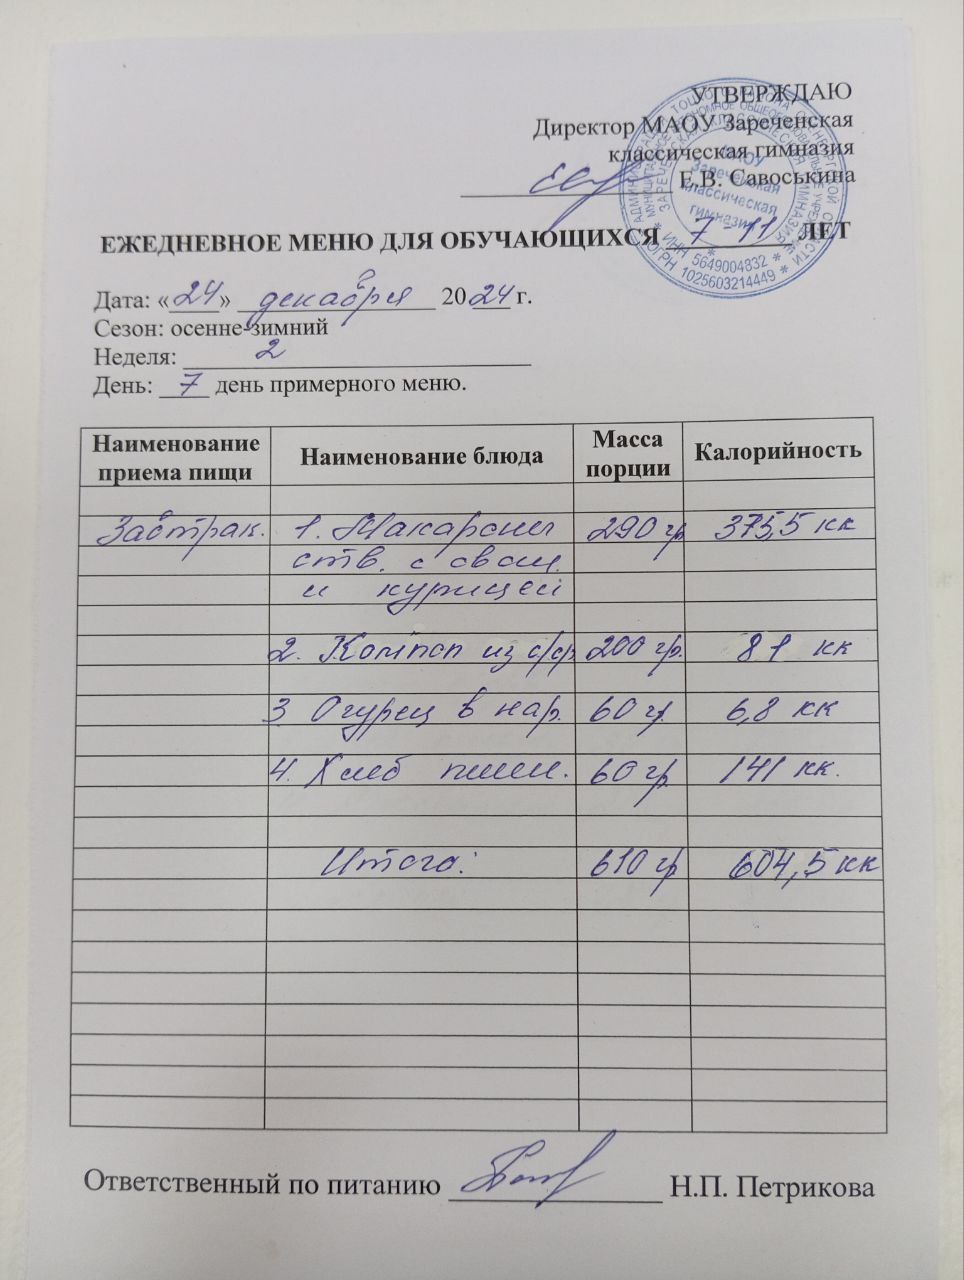 УТВЕРЖДАЮ
Директор МАОУ Зареченская
классическая гимназия
Е.В. Савоськина
МАОУ
Зареченская
классическая
гимназия
* ИНН 5649004832 *
* ОГРН 1025603214449 *
ЕЖЕДНЕВНОЕ МЕНЮ ДЛЯ ОБУЧАЮЩИХСЯ 7-11 ЛЕТ
Дата: «24» декабря 2024 г.
Сезон: осенне-зимний
Неделя: 2
День: 7 день примерного меню.
Наименование приема пищи Наименование блюда Масса порции Калорийность
Завтрак. 1. Макароны 290 гр 375,5 кк
отв. с овощ.
и курицей
2. Компот из с/фр 200 гр. 81 кк
3 Огурец в нар. 60 гр. 6,8 кк
4. Хлеб пшен. 60 гр 141 кк.
Итого: 610 гр 604,5 кк
Ответственный по питанию Н.П. Петрикова